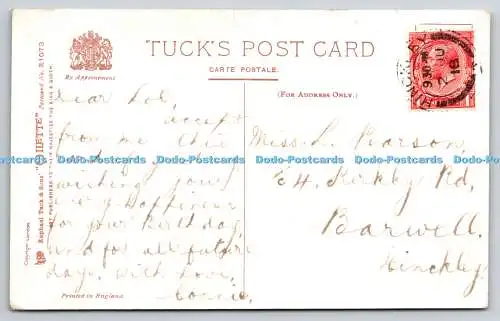 TUCK'S POST CARD
CARTE POSTALE.
By Appointment
(FOR ADDRESS ONLY.)
Raphael Tuck & Sons' "OILETTE" Postcard No. R1073
ART PUBLISHERS TO THEIR MAJESTIES THE KING & QUEEN.
Copyright
HINCKLEY
9 30 AM
JU
18
Dear Lol,
accept
from me this
wishing you
every happiness
for your birthday,
and for all future
days. with love,
Printed in England
Miss L. Pearson,
64, Kirkby Rd,
Barwell.
Hinckley
Dodo-Postcards Dodo-Postcards Dodo-Postcards Dodo-Postcards Dodo-Postcards